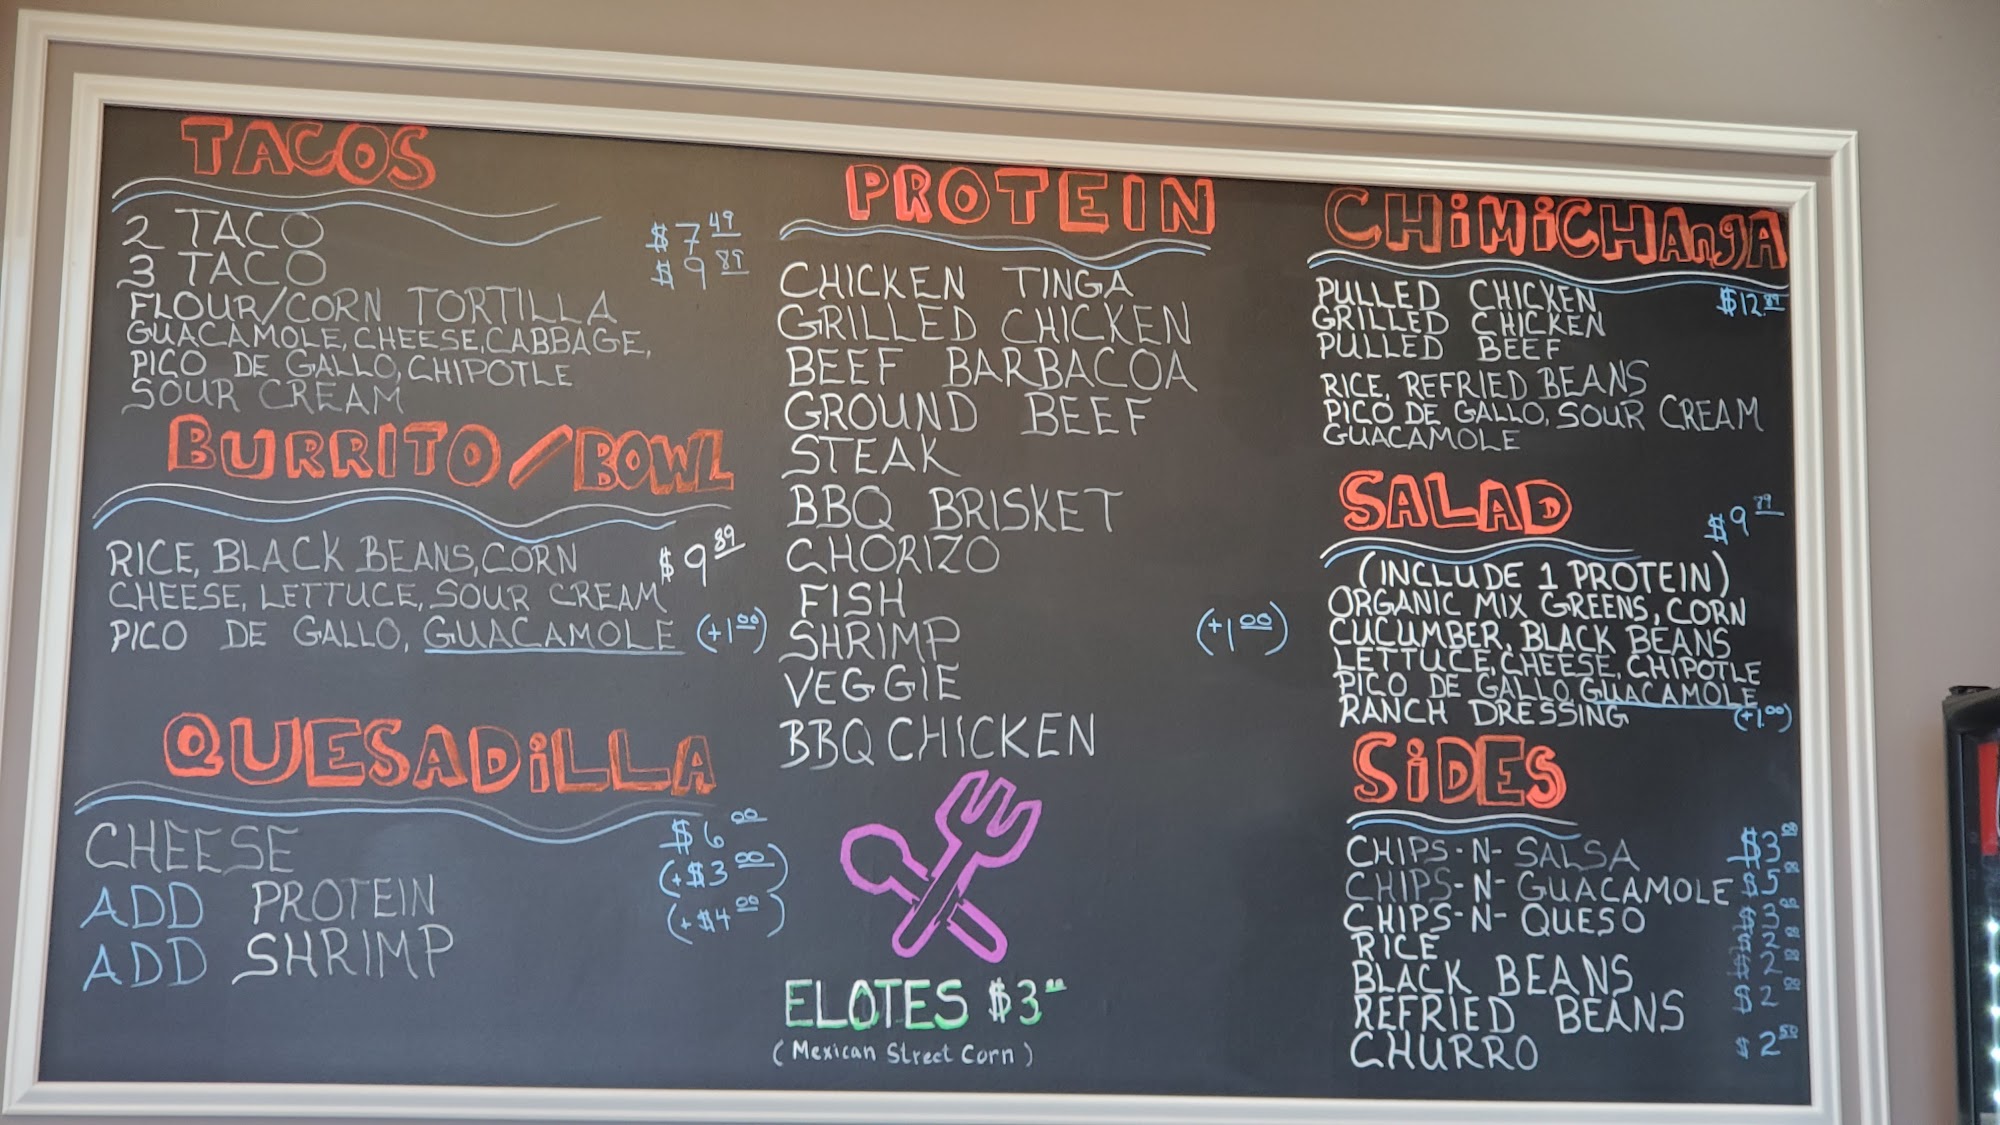 TACOS
2 TACO $7 49
3 TACO $9 89
FLOUR/CORN TORTILLA
GUACAMOLE, CHEESE, CABBAGE,
PICO DE GALLO, CHIPOTLE
SOUR CREAM
BURRITO/BOWL
RICE, BLACK BEANS, CORN $9 89
CHEESE, LETTUCE, SOUR CREAM
PICO DE GALLO, GUACAMOLE (+1 00)
QUESADiLLA
CHEESE $6 00
ADD PROTEIN (+$3 00)
ADD SHRIMP (+$4 00)
PROTEIN
CHICKEN TINGA
GRILLED CHICKEN
BEEF BARBACOA
GROUND BEEF
STEAK
BBQ BRISKET
CHORIZO
FISH
SHRIMP (+1 00)
VEGGIE
BBQ CHICKEN
ELOTES $3 00
(Mexican Street Corn)
CHiMiCHAngA
PULLED CHICKEN $12 89
GRILLED CHICKEN
PULLED BEEF
RICE, REFRIED BEANS
PICO DE GALLO, SOUR CREAM
GUACAMOLE
SALAD
$9
(INCLUDE 1 PROTEIN)
ORGANIC MIX GREENS, CORN
CUCUMBER, BLACK BEANS
LETTUCE, CHEESE, CHIPOTLE
PICO DE GALLO, GUACAMOLE
RANCH DRESSING (+1.00)
SiDES
CHIPS-N-SALSA $3
CHIPS-N-GUACAMOLE $5
CHIPS-N-QUESO $3
RICE $2
BLACK BEANS $2
REFRIED BEANS $2
CHURRO $2 50